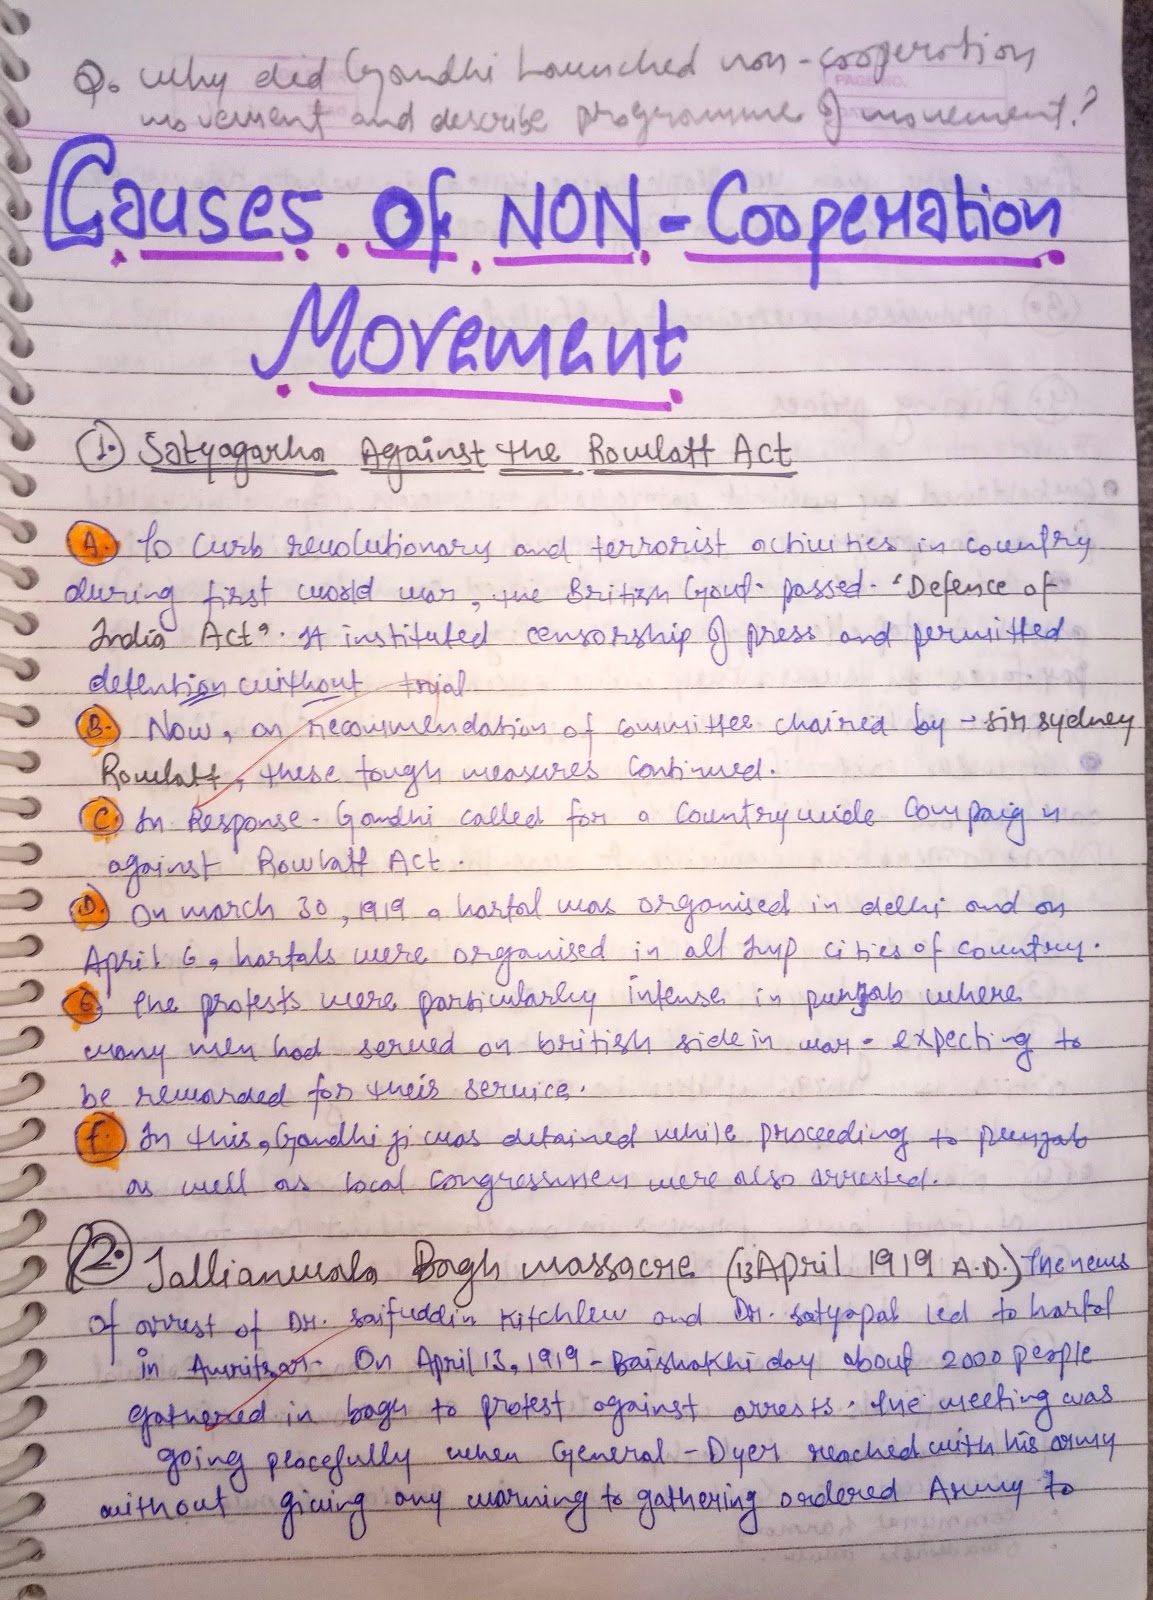 Q. Why did Gandhi Launched non-cooperation
movement and describe programme of movement?
Causes Of NON-Cooperation
Movement
1. Satyagarha Against the Rowlatt Act
A. To Curb revolutionary and terrorist activities in country
during first world war, the British Govt. passed - 'Defence of
India Act'. It instituted censorship of press and permitted
detention without trial
B. Now, on recommendation of committee chaired by - sir sydney
Rowlatt, these tough measures continued.
C. In Response - Gandhi called for a Countrywide Campaign
against Rowlatt Act.
D. On march 30, 1919 a hartal was organised in delhi and on
April 6, hartals were organised in all Imp cities of country.
E. The protests were particularly intense in punjab where
many men had served on british side in war - expecting to
be rewarded for their service.
F. In this, Gandhi ji was detained while proceeding to punjab
as well as local Congressmen were also arrested.
2. Jallianwala Bagh massacre (13 April 1919 A.D.) The news
of arrest of Dr. Saifuddin Kitchlew and Dr. Satyapal led to hartal
in Amritsar. On April 13, 1919 - Baishakhi day about 2000 people
gathered in bagh to protest against arrests. The meeting was
going peacefully when General - Dyer reached with his army
without giving any warning to gathering ordered Army to